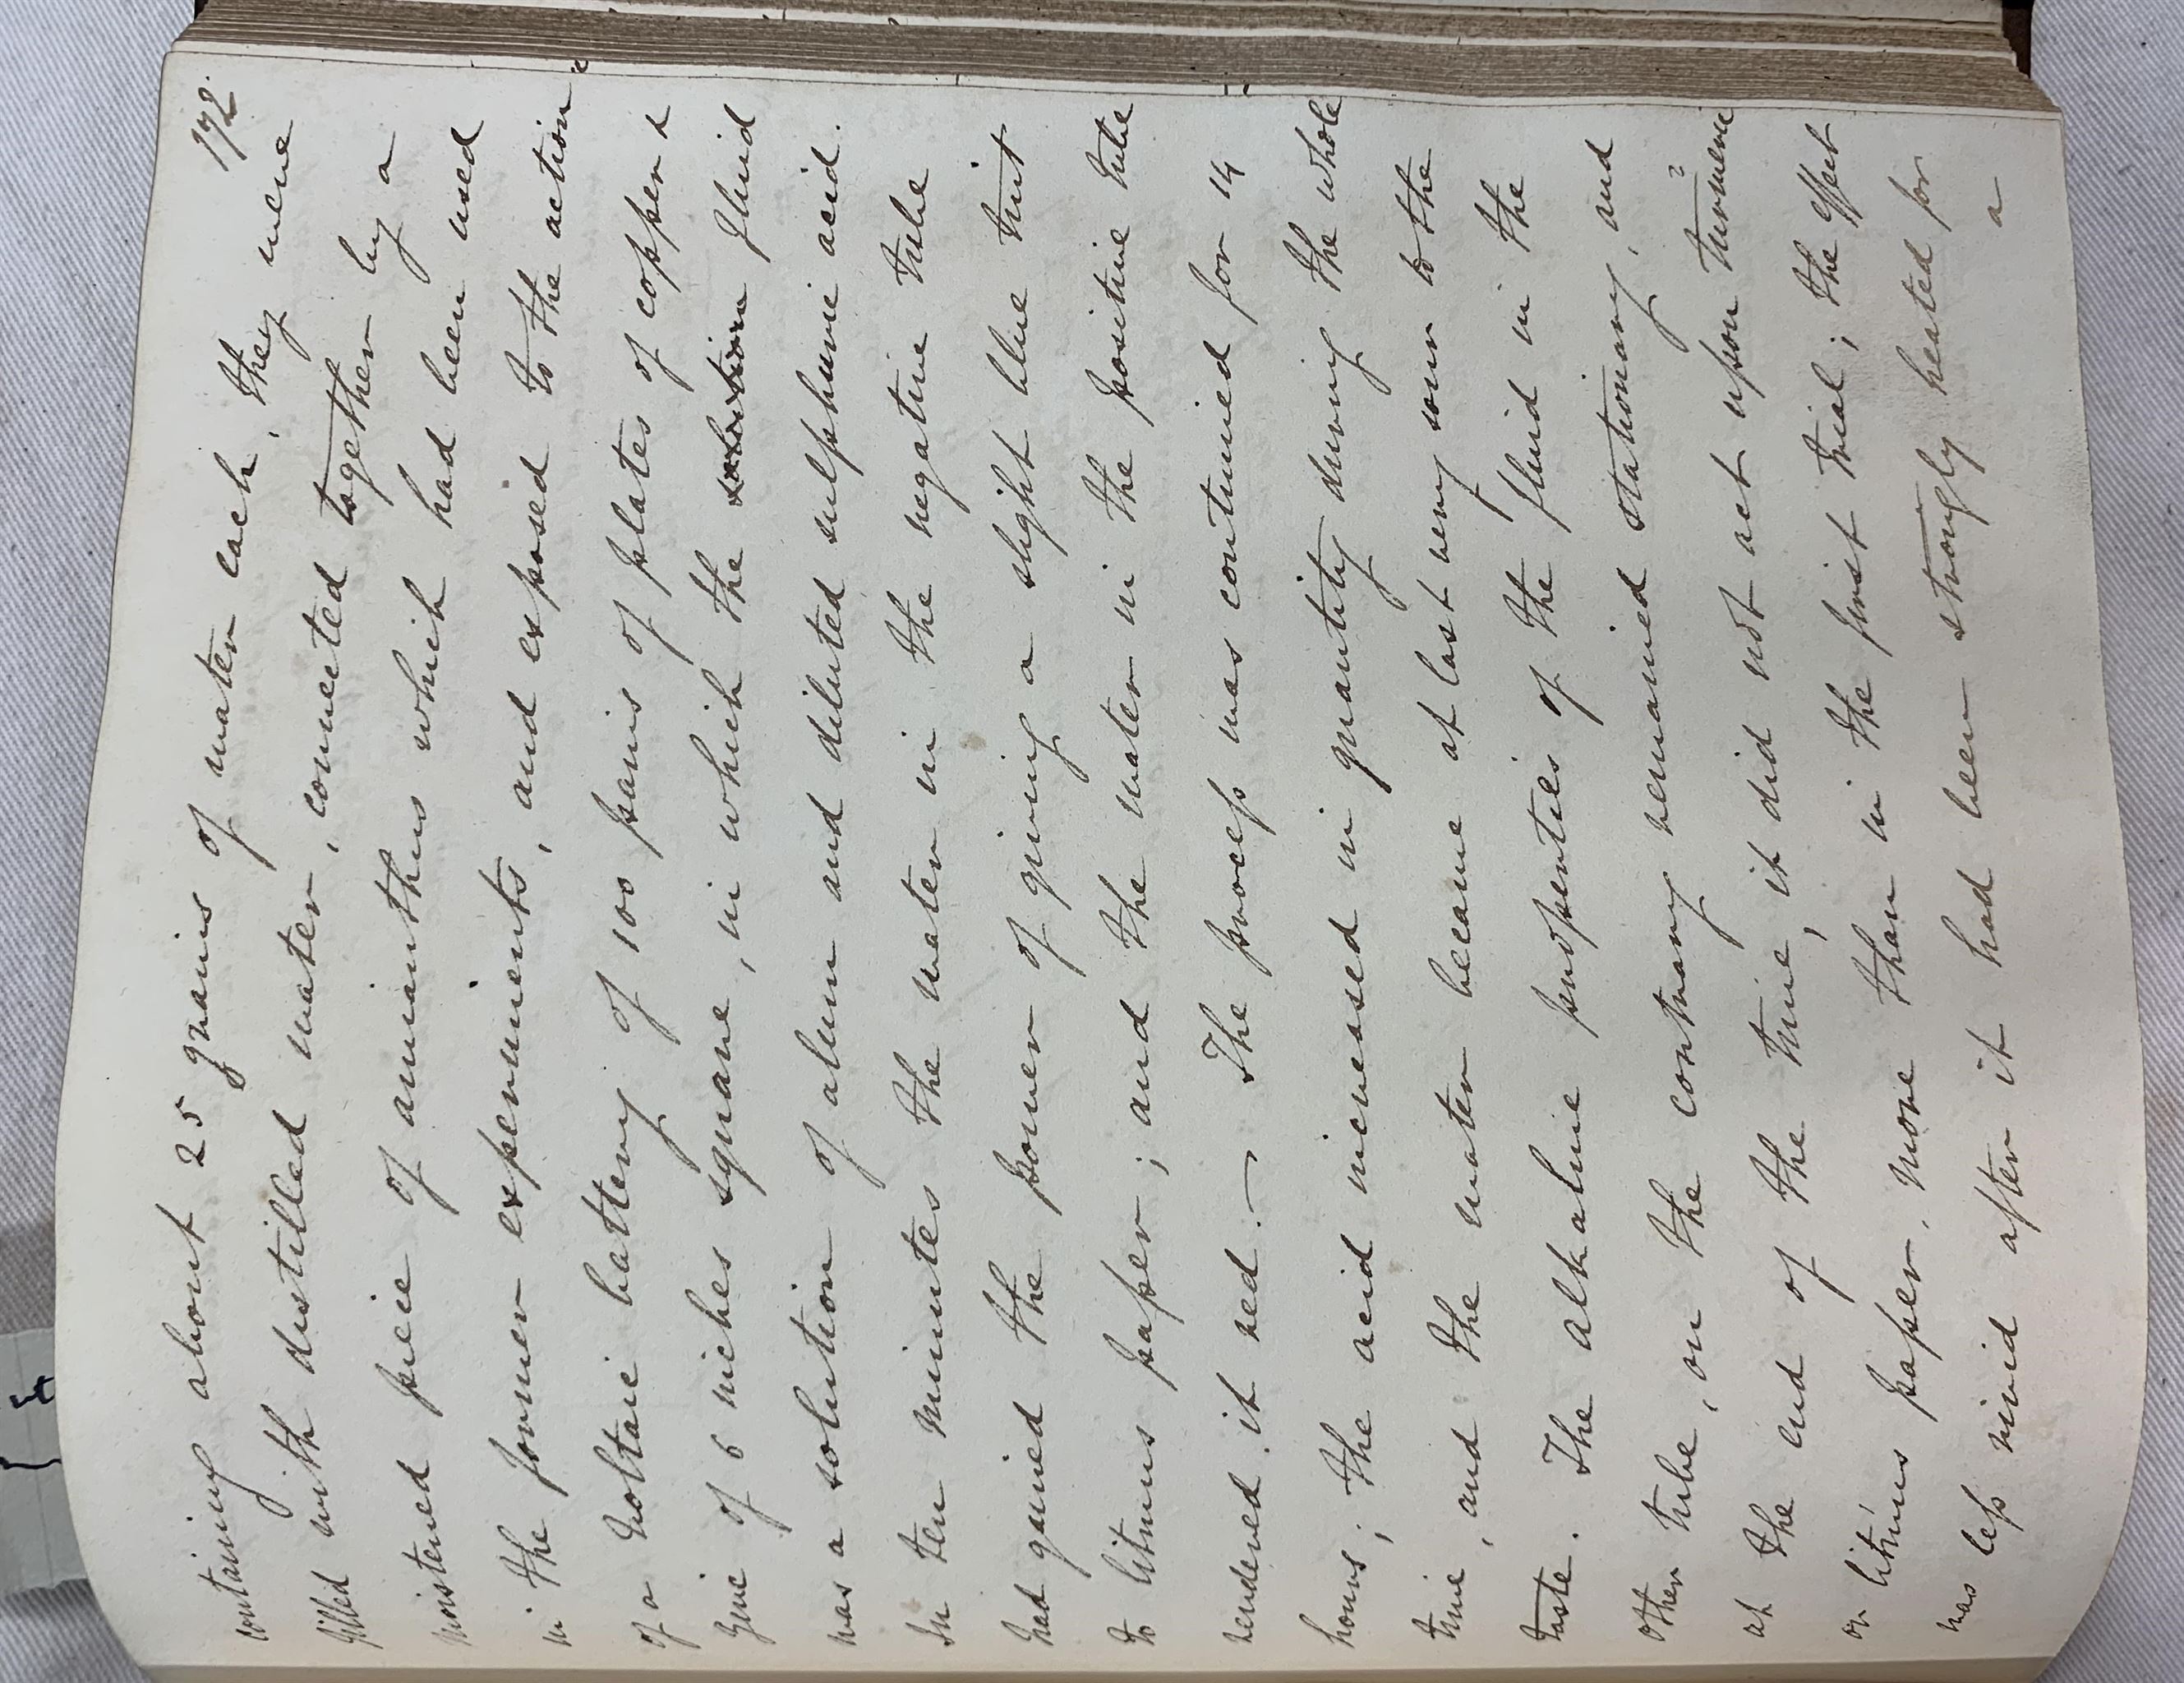 172.
containing about 25 grains of water each, they were
filled with distilled water, connected together by a
moistened piece of amianthus which had been used
in the former experiments, and exposed to the action
of a Voltaic battery of 100 pairs of plates of copper &
Zinc of 6 inches square, in which the solution fluid
was a solution of alum and diluted sulphuric acid.
In ten minutes the water in the negative tube
had gained the power of giving a slight blue tint
to litmus paper; and the water in the positive tube
rendered it red. — The process was continued for 14
hours; the acid increased in quantity during the whole
time, and the water became at last very sour to the
taste. The alkaline properties of the fluid in the
other tube, on the contrary remained stationary, and
at the end of the time, it did not act upon turmeric
or litmus paper, more than in the first trial; the effect
was less vivid after it had been strongly heated for
a